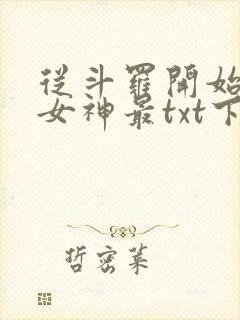 從斗羅開始
女神最txt下
哲密菜